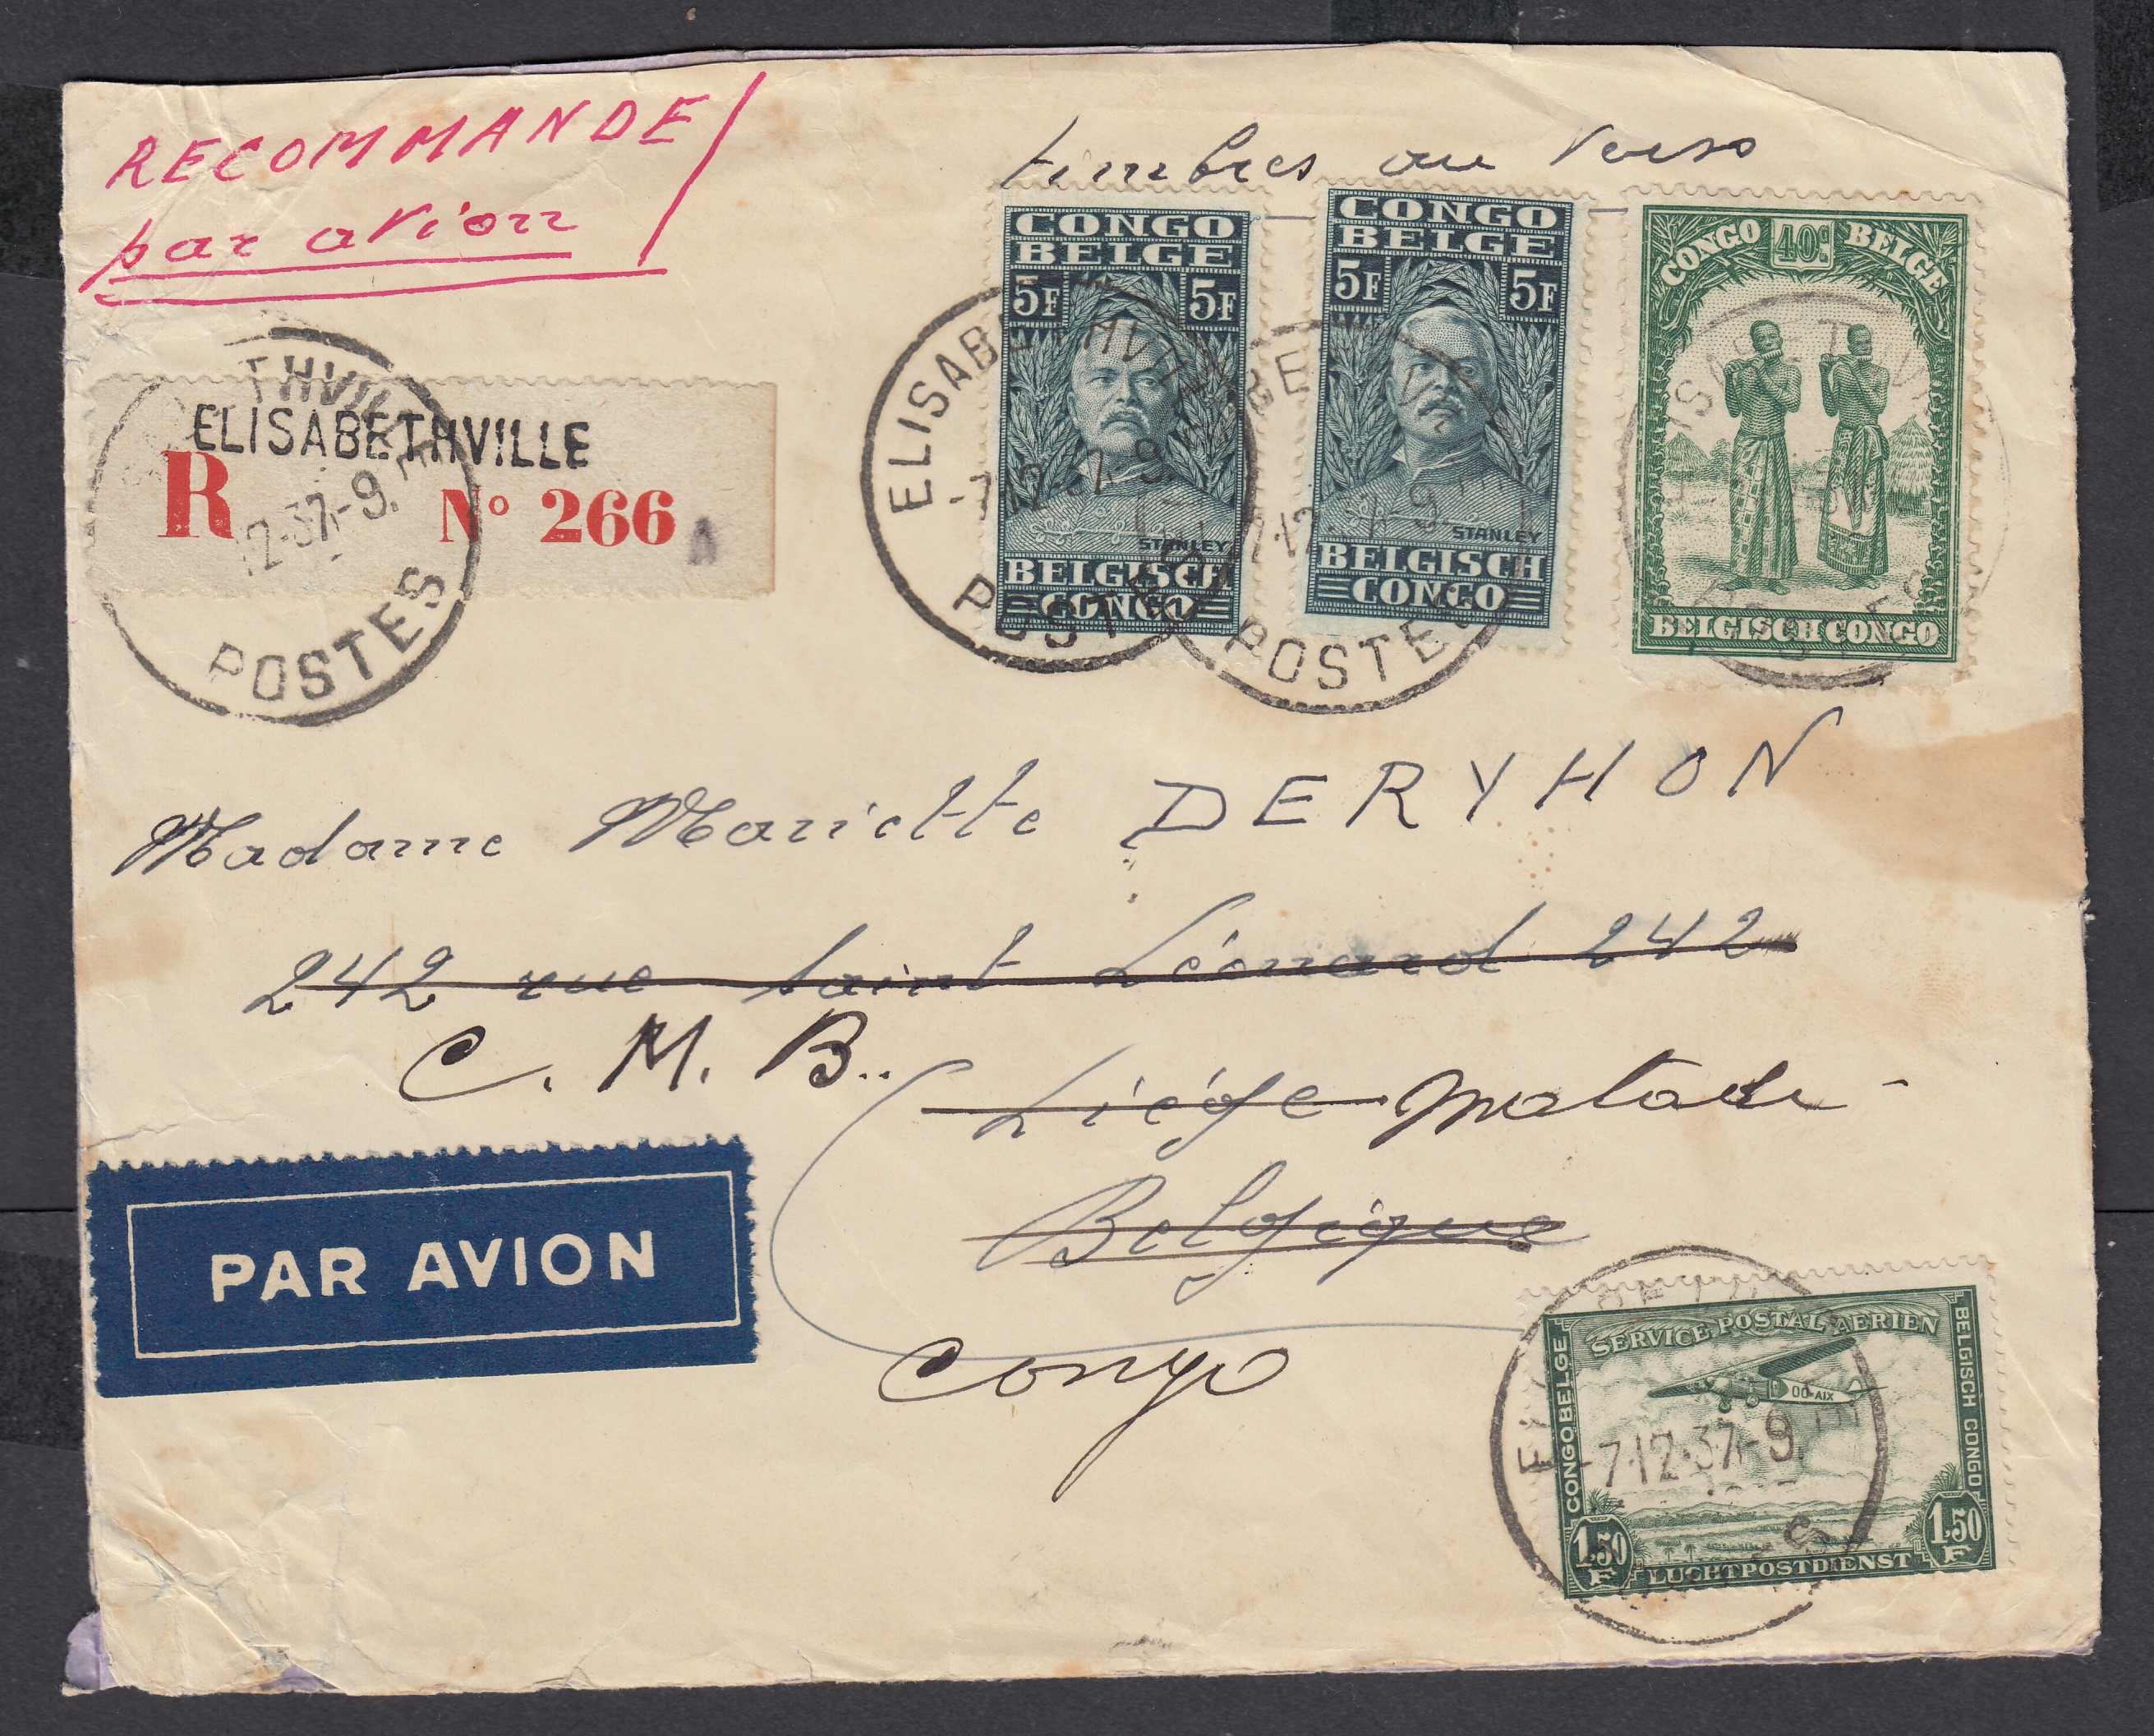 RECOMMANDE
par avion
timbres au verso
ELISABETHVILLE
R N° 266
THVILLE
12-37-9
POSTES
CONGO
BELGE
5F 5F
STANLEY
BELGISCH
CONGO
ELISABETHVILLE
-7 12-37-9
POSTES
CONGO
BELGE
5F 5F
STANLEY
BELGISCH
CONGO
POSTES
CONGO 40c BELGE
BELGISCH CONGO
Madame Mariette DERYHON
242 rue Saint Léonard 242
C. M. B..
Liége Matadi -
Belgique
Congo
PAR AVION
SERVICE POSTAL AÉRIEN
CONGO BELGE
BELGISCH CONGO
OO-AIX
-7-12-37-9
1.50 F 1.50 F
LUCHTPOSTDIENST